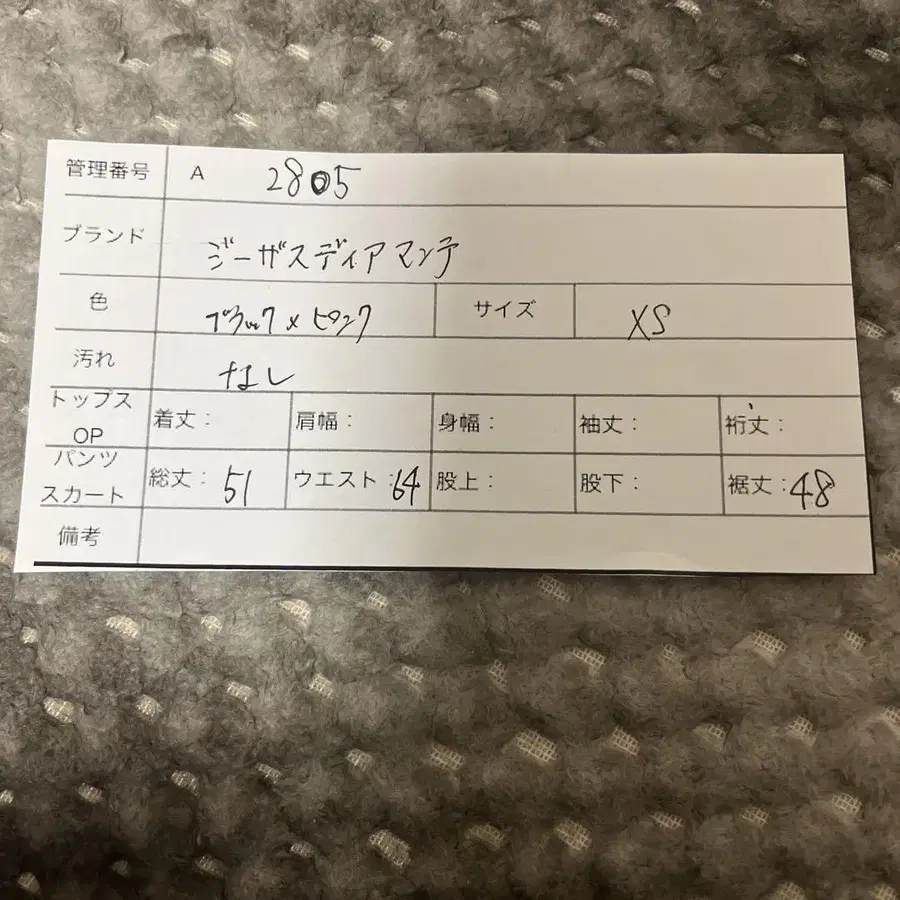 管理番号 A 2805
ブランド ジーザスディアマンテ
色 ブラック×ピンク サイズ XS
汚れ なし
トップス OP 着丈: 肩幅: 身幅: 袖丈: 裄丈:
パンツ スカート 総丈:51 ウエスト:64 股上: 股下: 裾丈:48
備考